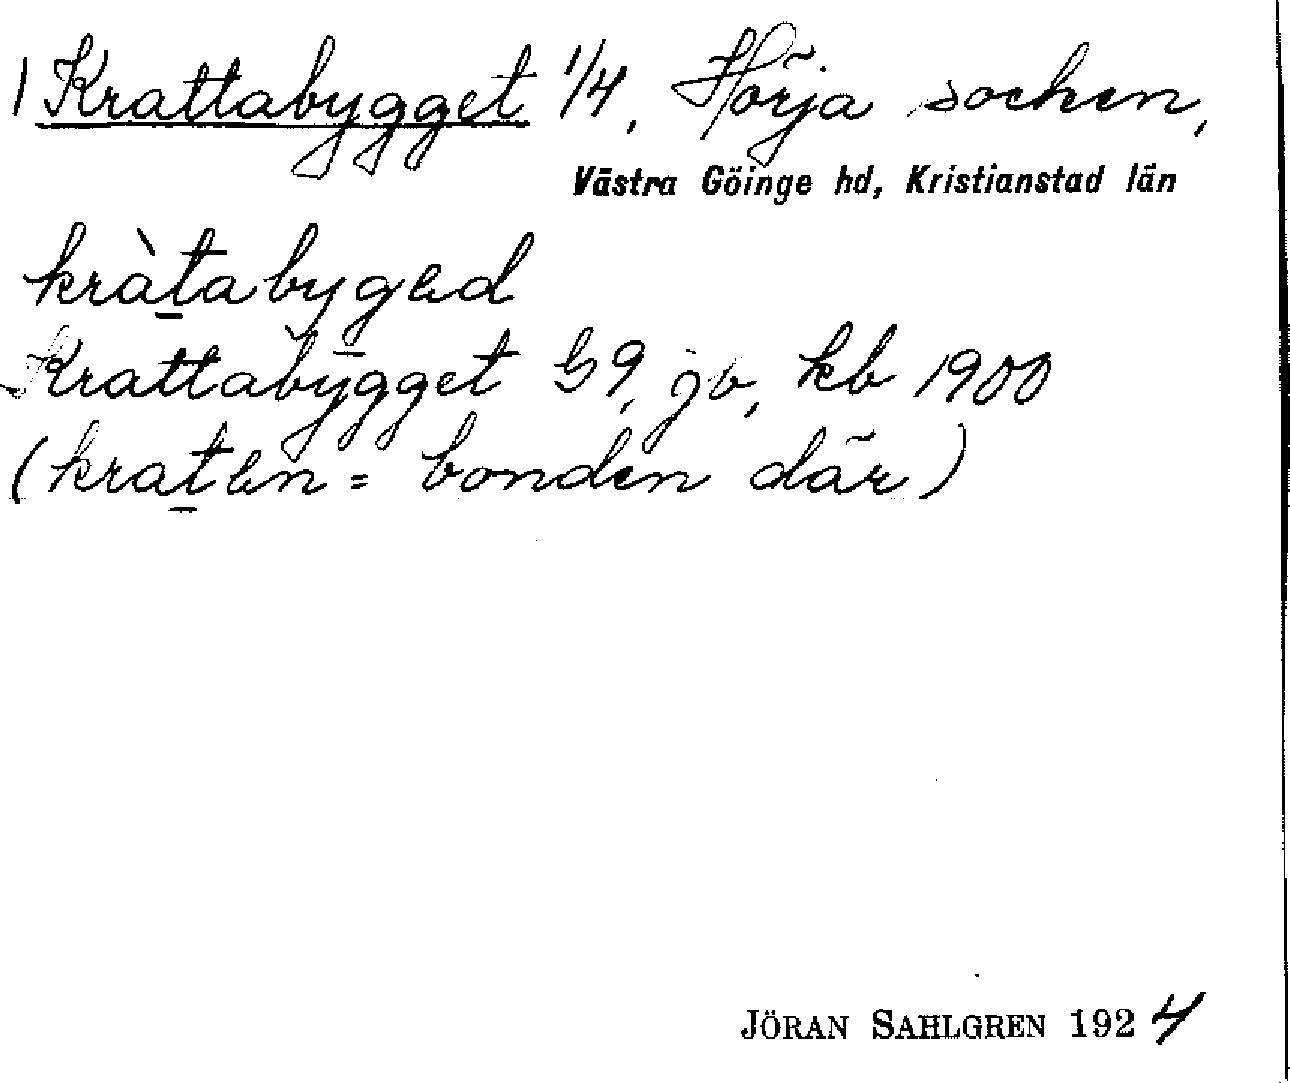 1 Krattabygget 1/4, Hörja socken,
Västra Göinge hd, Kristianstad län
kràtabygəd
Krattabygget G9, jb, kb 1900
(kratən = bonden där)
JÖRAN SAHLGREN 1924